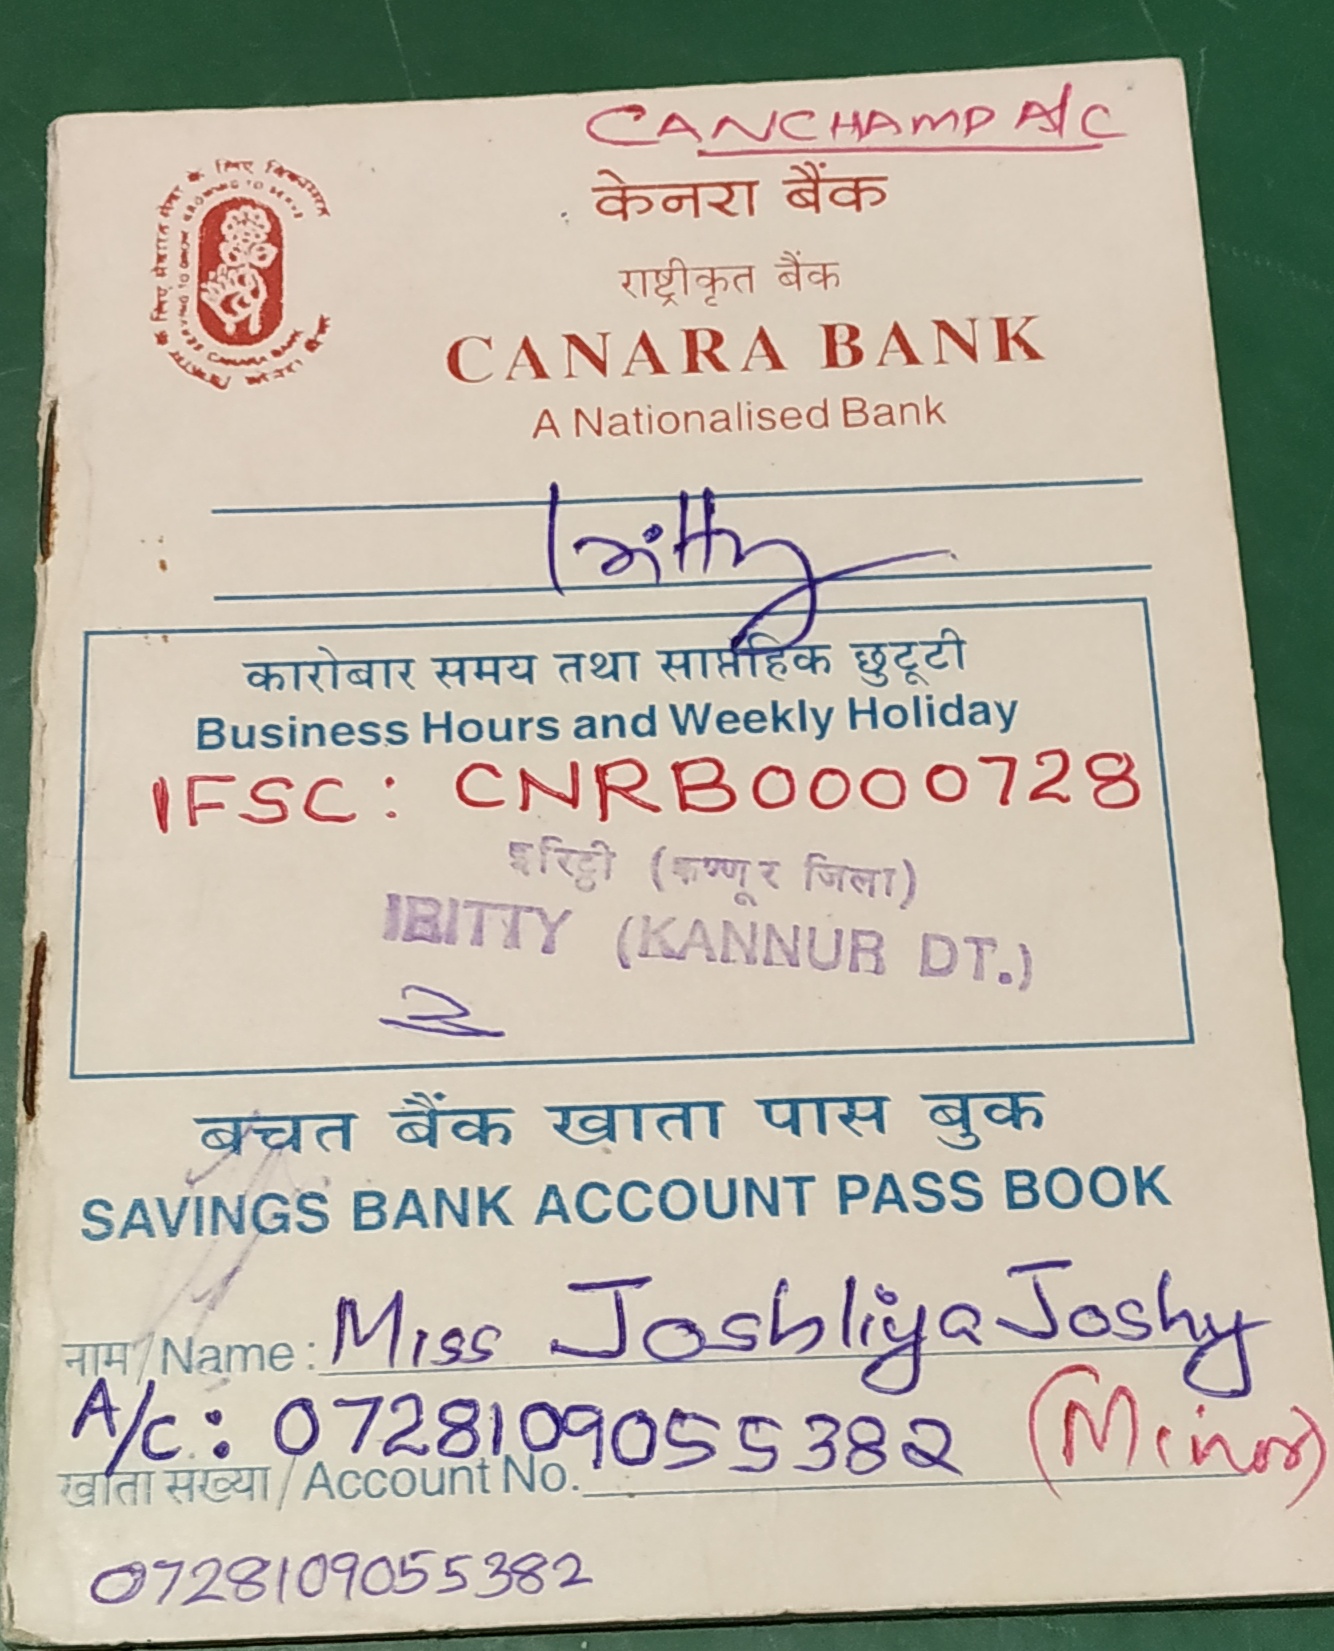 CANCHAMP A/C
केनरा बैंक
राष्ट्रीकृत बैंक
CANARA BANK
A Nationalised Bank
Iritty
कारोबार समय तथा साप्ताहिक छुटूटी
Business Hours and Weekly Holiday
IFSC: CNRB0000728
इरिट्टी (कण्णूर जिला)
IRITTY (KANNUR DT.)
बचत बैंक खाता पास बुक
SAVINGS BANK ACCOUNT PASS BOOK
नाम/Name: Miss Joshliya Joshy
A/c: 0728109055382 (Minor)
खाता सख्या/Account No.
0728109055382